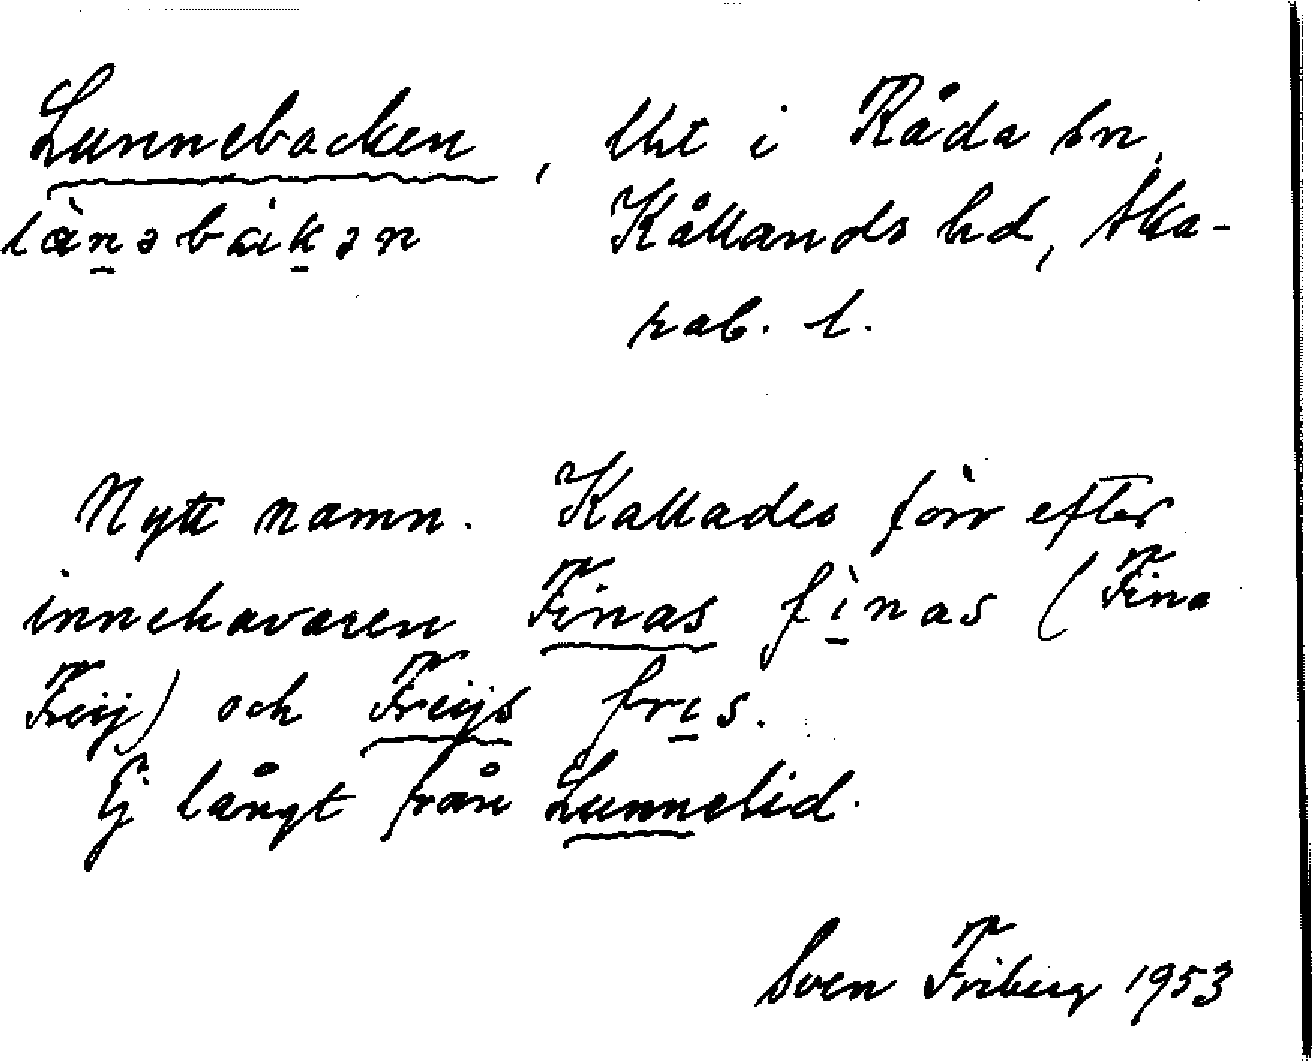 Lunnebacken, lht i Råda sn,
lànəbàkən Kållands hd, Ska-
rab. l.
Nytt namn. Kallades förr efter
innehavaren Finas fìnas (Fina
Freij) och Freijs fris.
Ej långt från Lunnelid.
Sven Friberg 1953